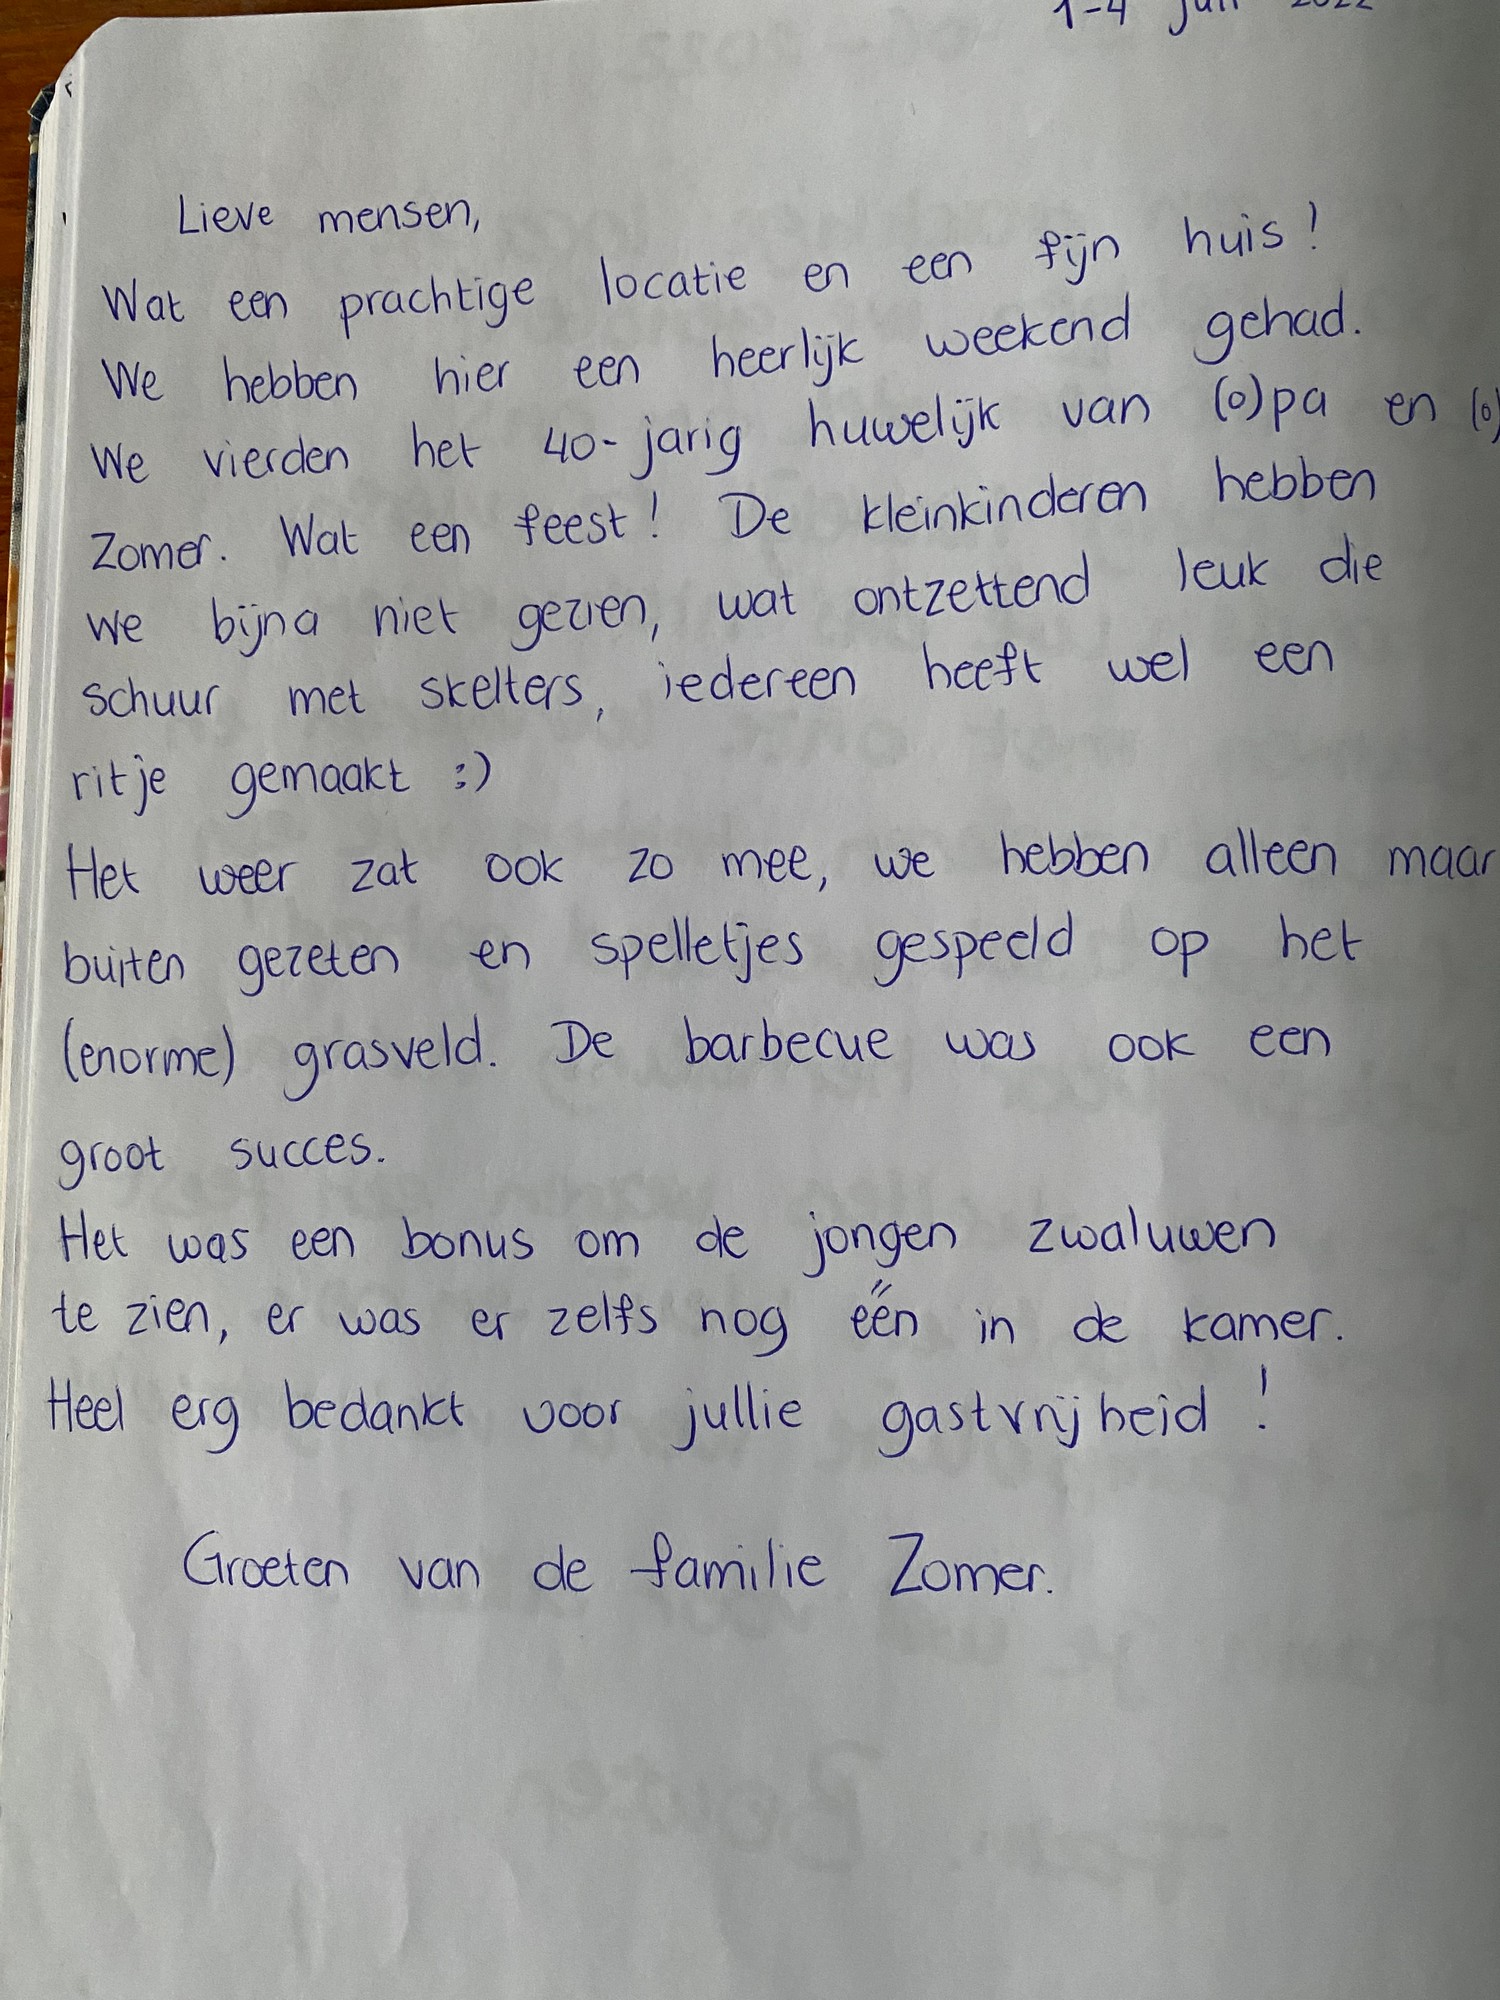 1-4 juli 2022
Lieve mensen,
Wat een prachtige locatie en een fijn huis!
We hebben hier een heerlijk weekend gehad.
We vierden het 40-jarig huwelijk van (o)pa en (o)
Zomer. Wat een feest! De kleinkinderen hebben
we bijna niet gezien, wat ontzettend leuk die
schuur met skelters, iedereen heeft wel een
ritje gemaakt :)
Het weer zat ook zo mee, we hebben alleen maar
buiten gezeten en spelletjes gespeeld op het
(enorme) grasveld. De barbecue was ook een
groot succes.
Het was een bonus om de jongen zwaluwen
te zien, er was er zelfs nog één in de kamer.
Heel erg bedankt voor jullie gastvrijheid!
Groeten van de familie Zomer.